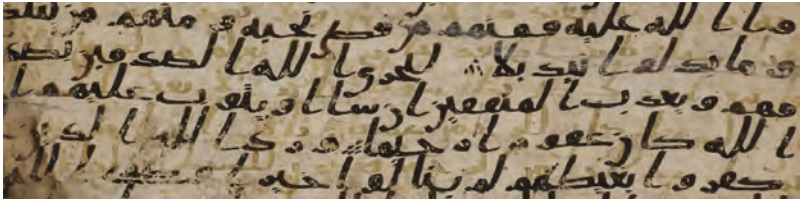 وا الله عليه فمنهم من قضى نحبه ومنهم من ينتظ
ر وما بدلوا تبديلا ليجزي الله الصدقين بصد
قهم ويعذب المنفقين ان شا او يتوب عليهم ان
الله كان غفورا رحيما ورد الله الذين
كفروا بغيظهم لم ينالوا خيرا وكفى الله